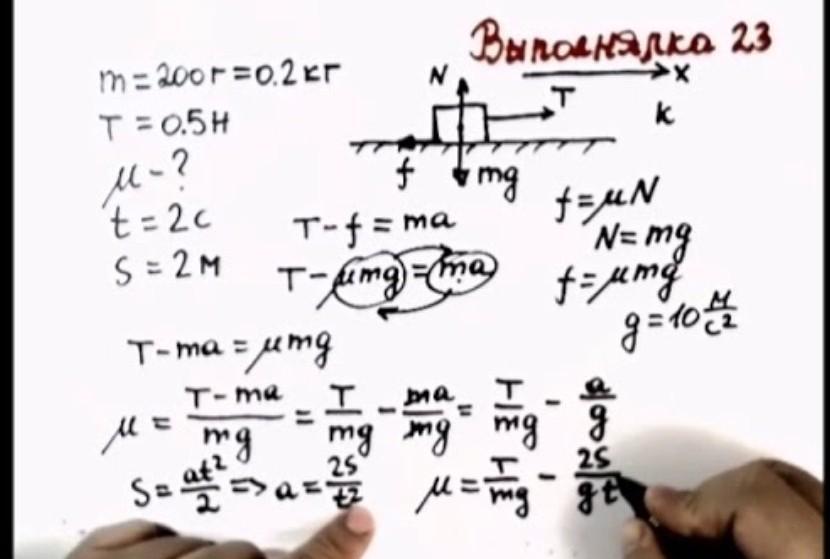 Выполнялка 23
m = 200г = 0.2кг
T = 0.5Н
μ - ?
t = 2с
S = 2м
N
T
x
k
f
mg
T - f = ma
T - μmg = ma
f = μN
N = mg
f = μmg
g = 10 м/с²
T - ma = μmg
μ = (T - ma)/mg = T/mg - ma/mg = T/mg - a/g
S = at²/2 => a = 2S/t²
μ = T/mg - 2S/gt